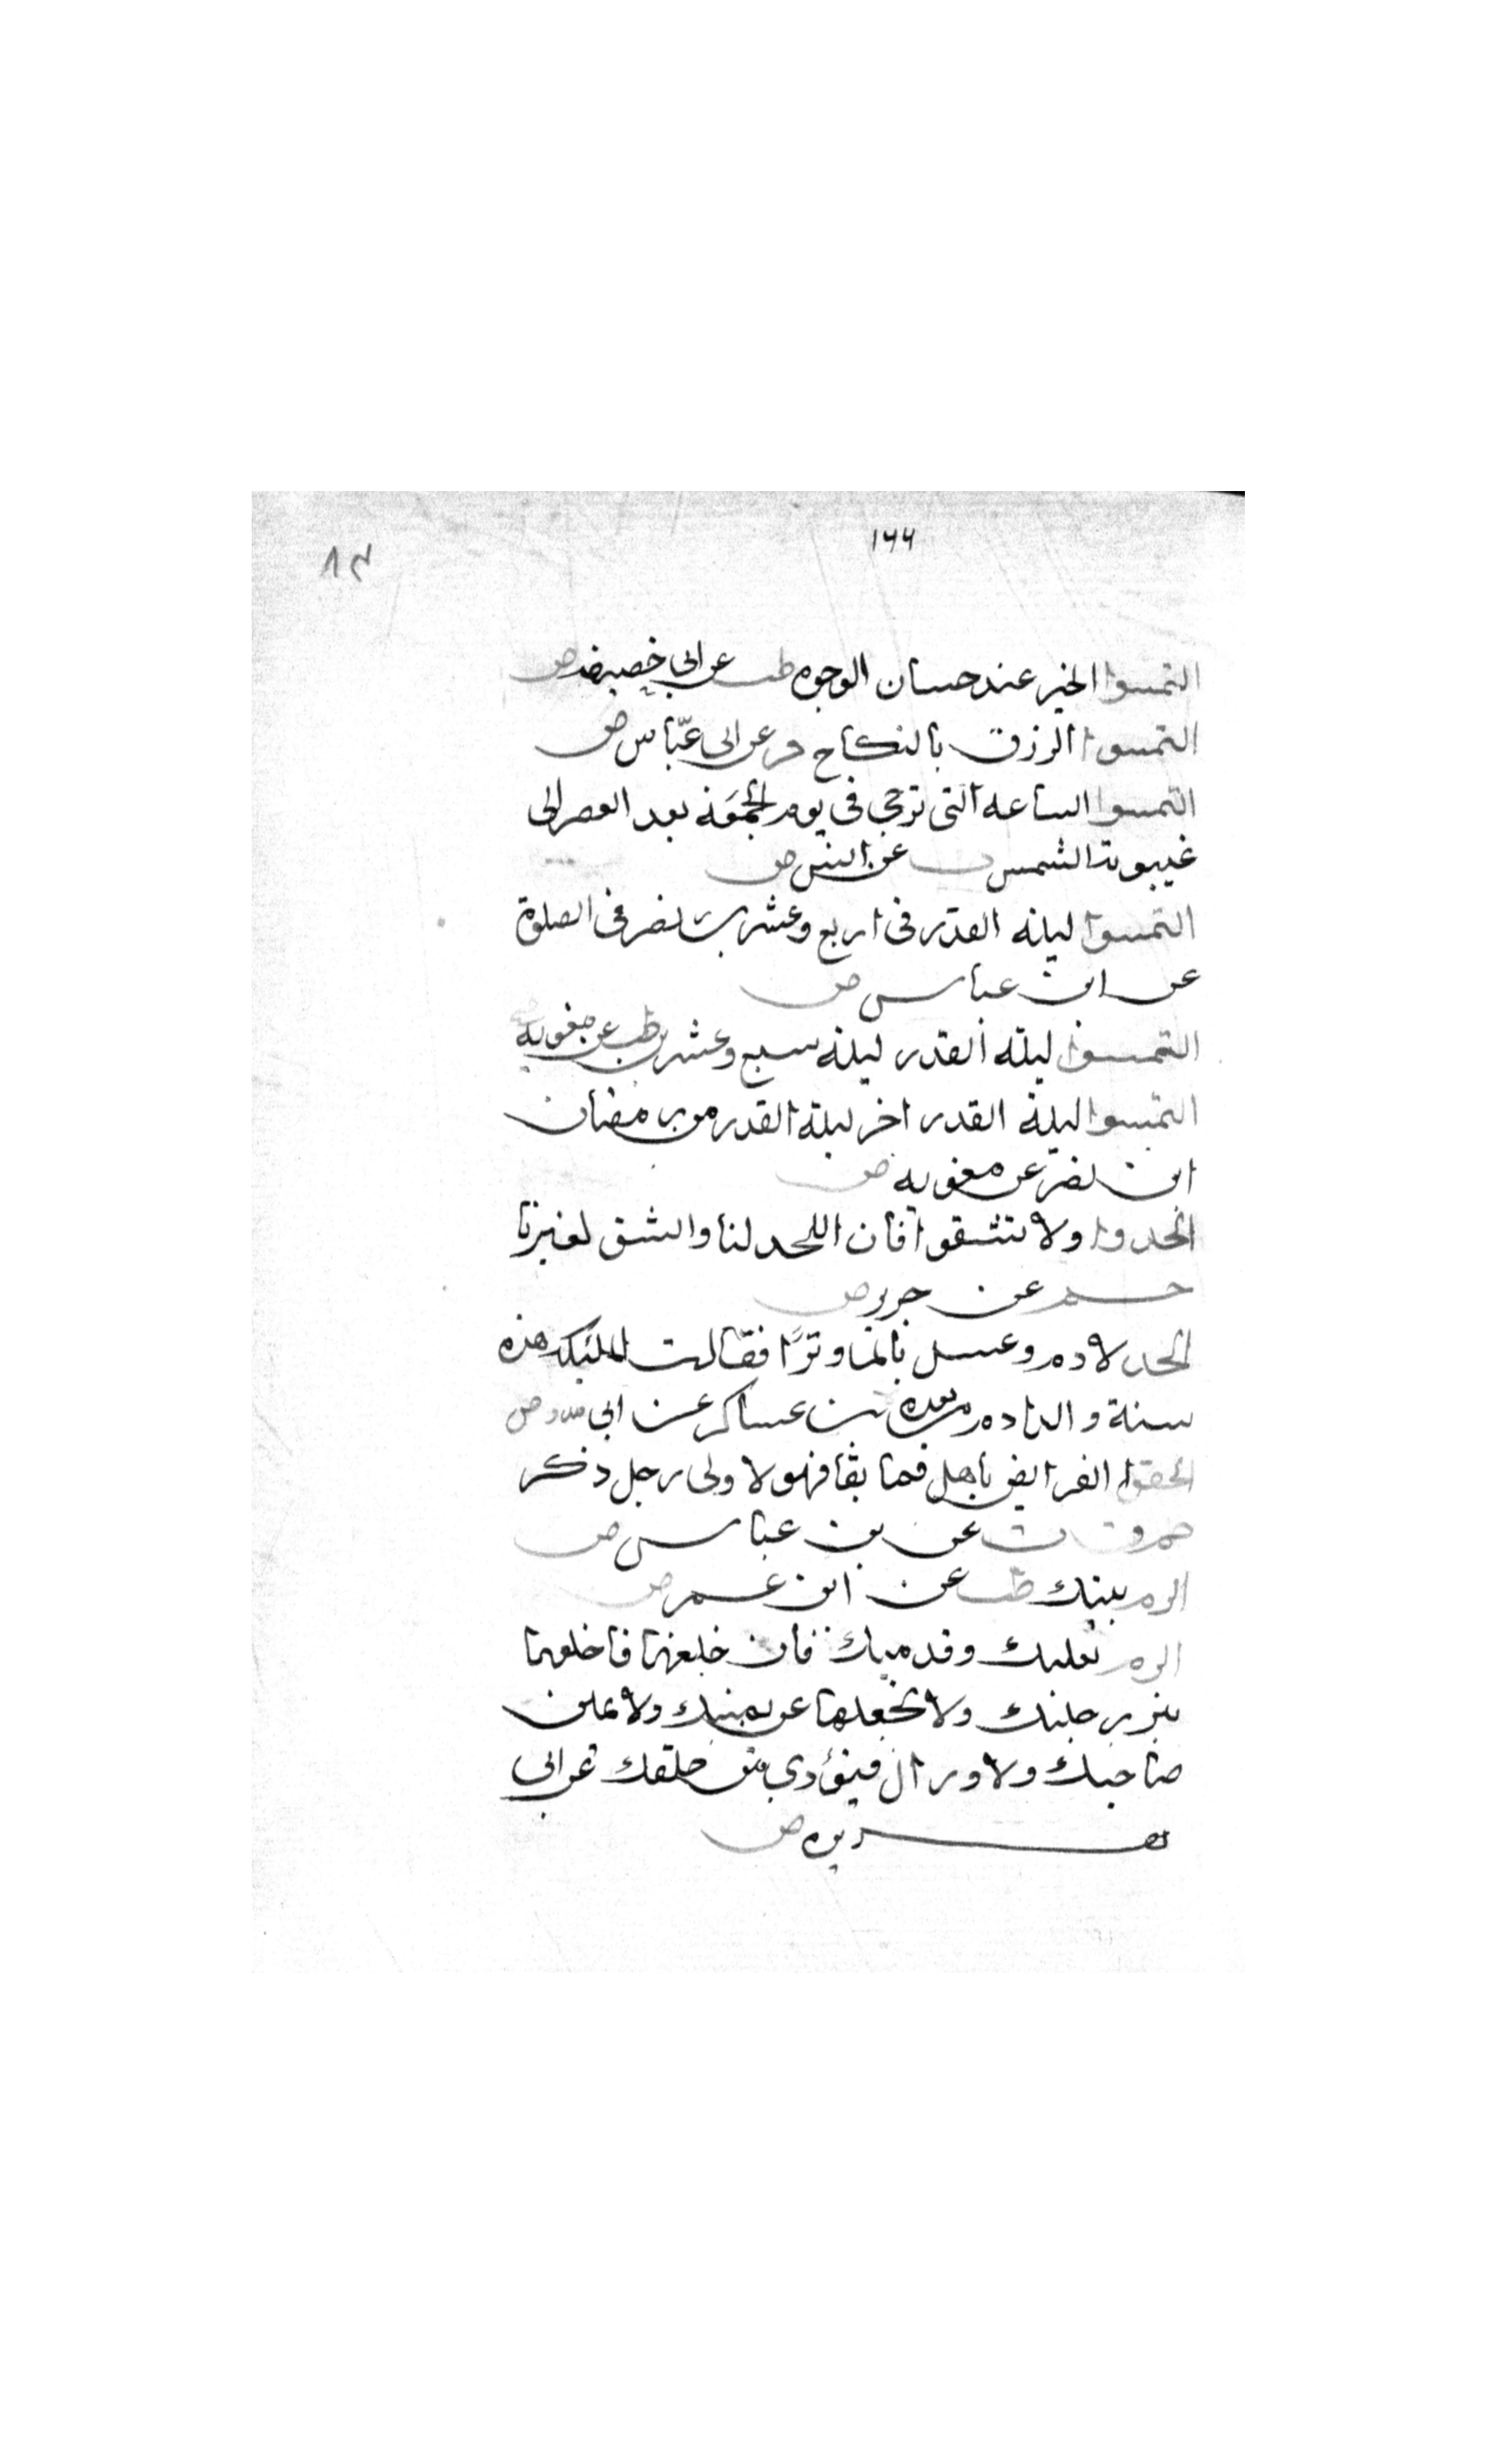 ١٦٦
التمسوا الخير عند حسان الوجوه طب عن ابي خصيفه ض
التمسوا الرزق بالنكاح فر عن ابى عبّاس ض
التمسوا الساعه التى ترجي فى يوم الجمعَة بعد العصر الى
غيبوبة الشمس ت عن انس ض
التمسوا ليلة القدر فى اربع وعشرين نصر فى الصلوة
عن ابن عباس ض
التمسوا ليلة القدر ليلة سبع وعشرين طب عن معويه
التمسوا ليلة القدر اخر ليلة القدر من رمضان
ابن نضر عن معويه ض
الحدوا ولا تشقوا فان اللحد لنا والشق لغيرنا
حم عن جرير ض
الحد لادم وغسل بالما وترًا فقالت الملئكه هذه
سنة ولد ادم من بعده بن عساكر عن ابي ض
الحقوا الفرايض باهل فما بقا فهو لاولى رجل ذكر
حم ق ت عن بن عباس ض
الزم بيتك طب عن ابن عمر ض
الزم نعليك وقدميك فان خلعتهما فاخلعهما
بين رجليك ولا تجعلهما عن يمينك ولا يمين
صاحبك ولا ورا فتؤدي من خلفك عن ابى
هريره ض